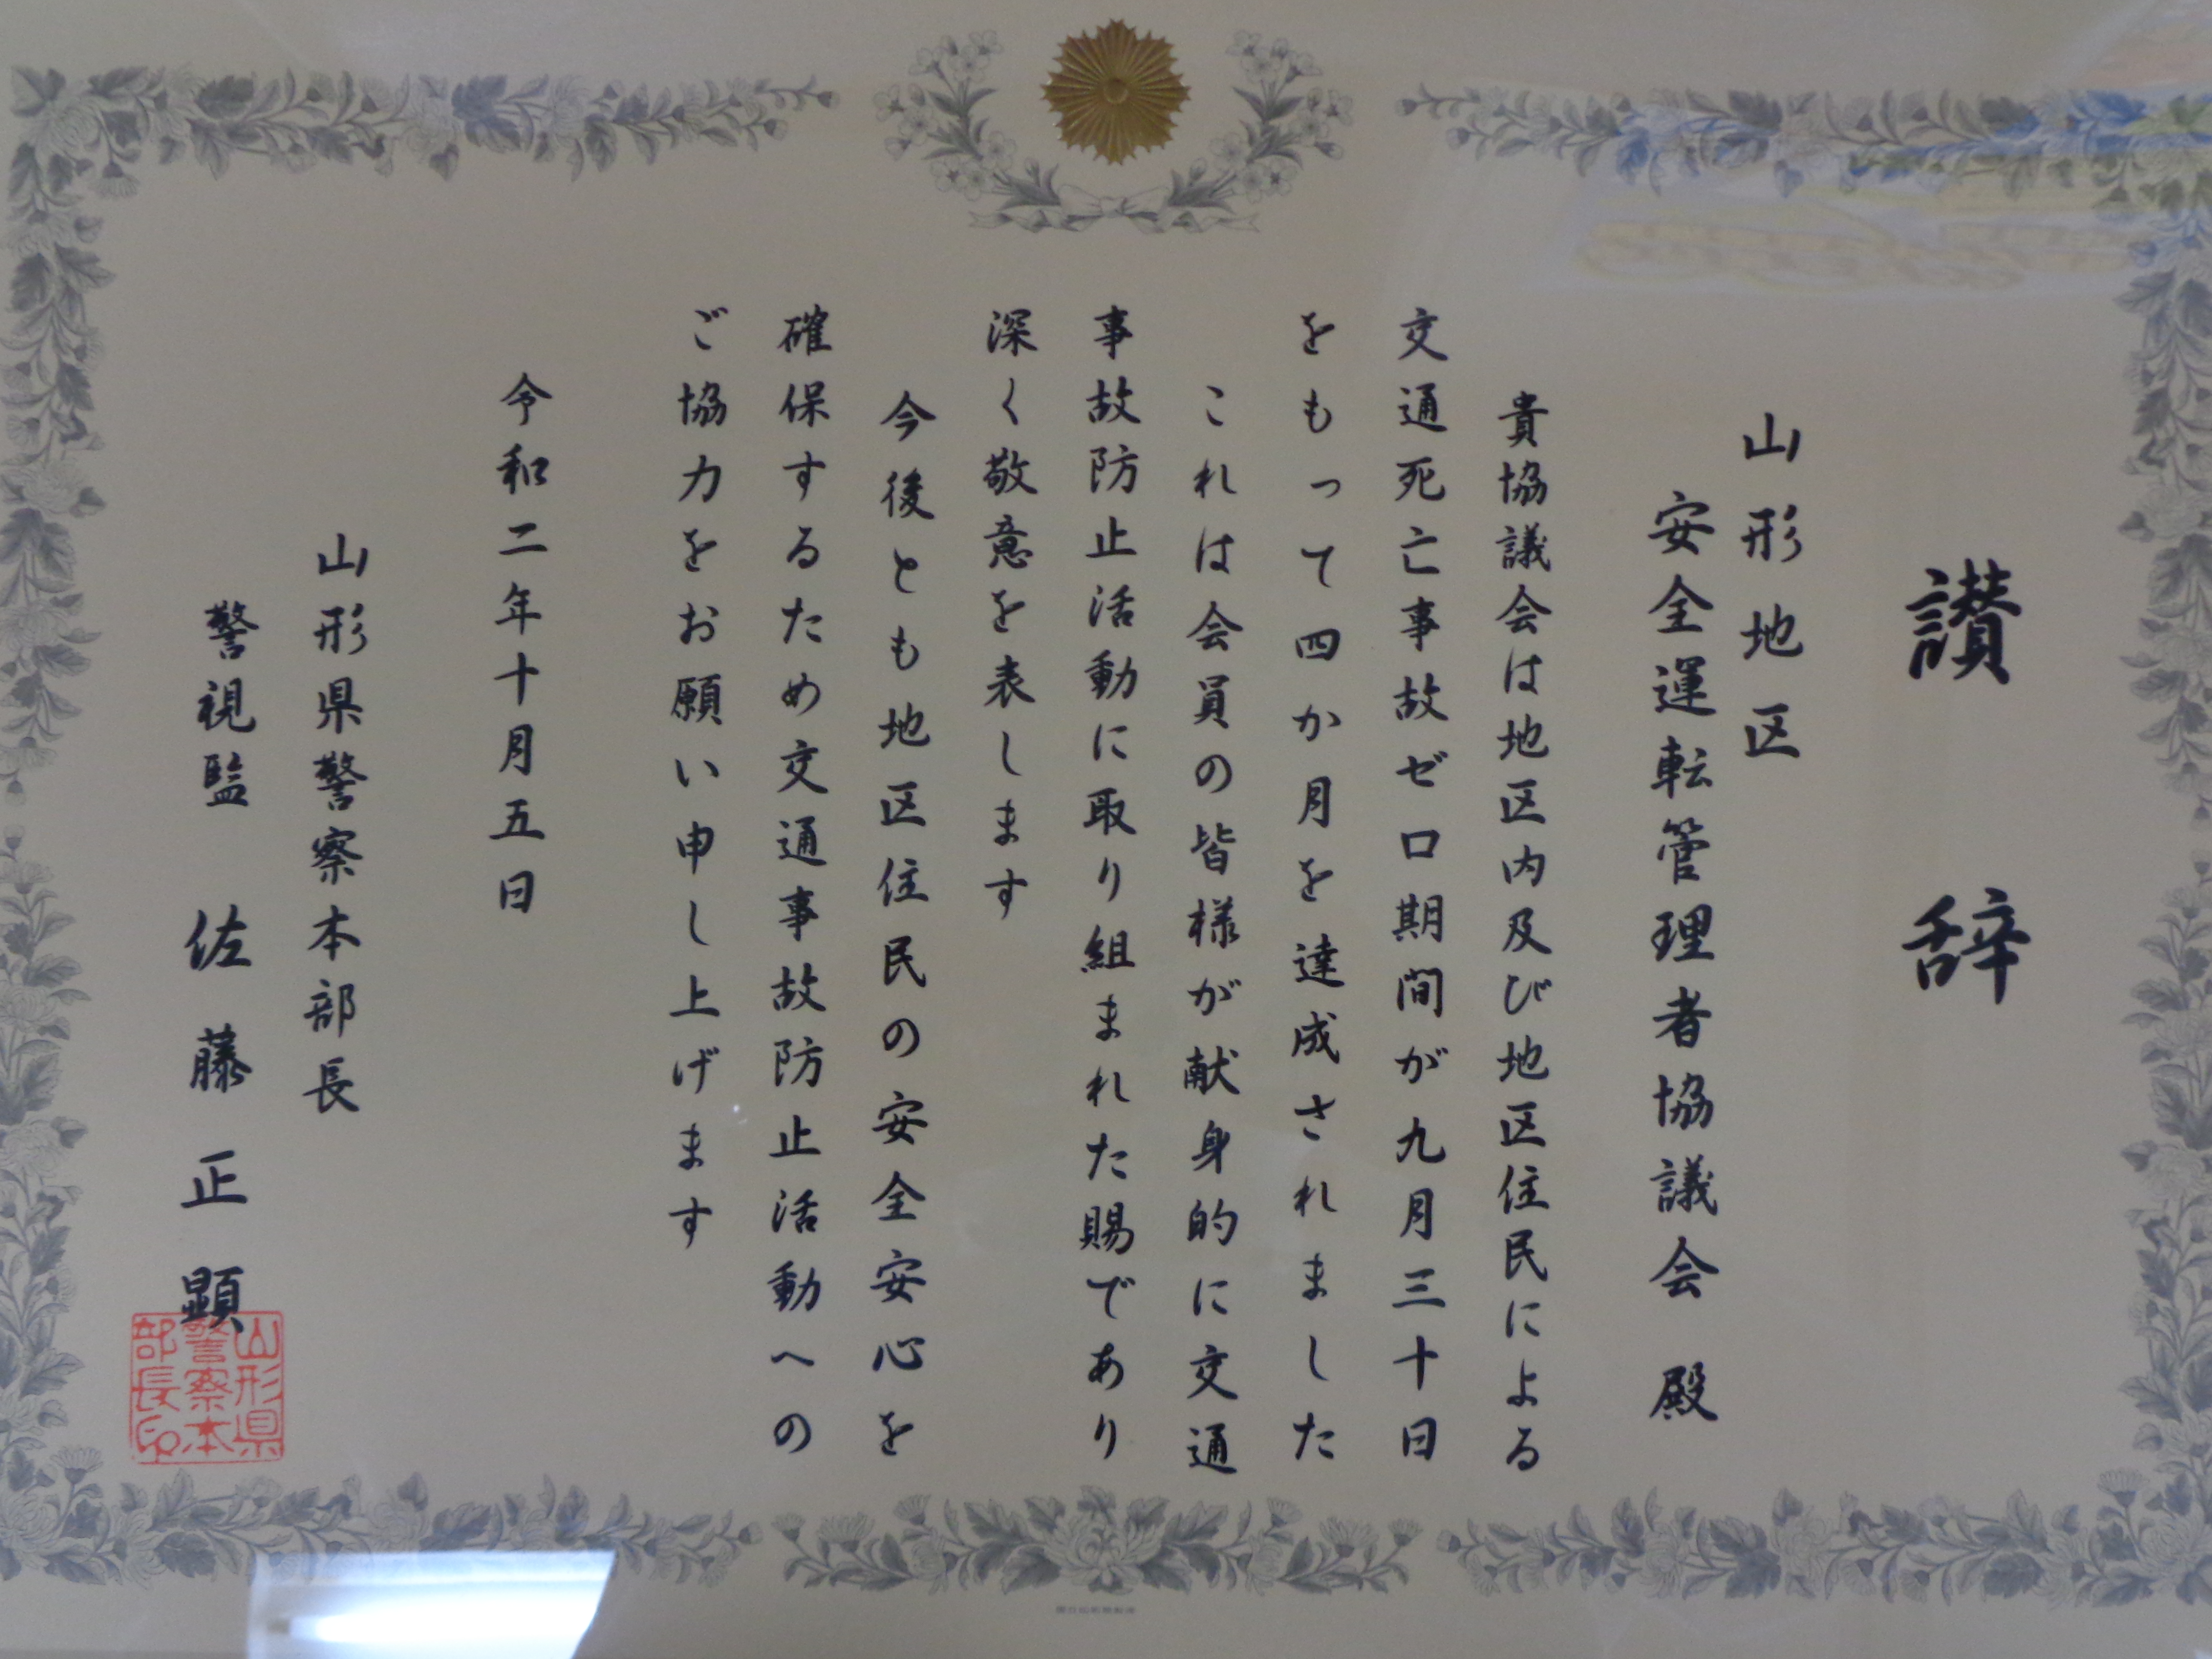 讃辞
山形地区
安全運転管理者協議会 殿
貴協議会は地区内及び地区住民による
交通死亡事故ゼロ期間が九月三十日
をもって四か月を達成されました
これは会員の皆様が献身的に交通
事故防止活動に取り組まれた賜であり
深く敬意を表します
今後とも地区住民の安全安心を
確保するため交通事故防止活動への
ご協力をお願い申し上げます
令和二年十月五日
山形県警察本部長
警視監 佐藤正顕
山形県
警察本
部長印